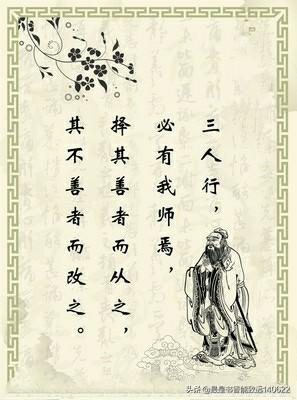 三人行，
必有我师焉，
择其善者而从之，
其不善者而改之。
头条 @是是书香能致远140622